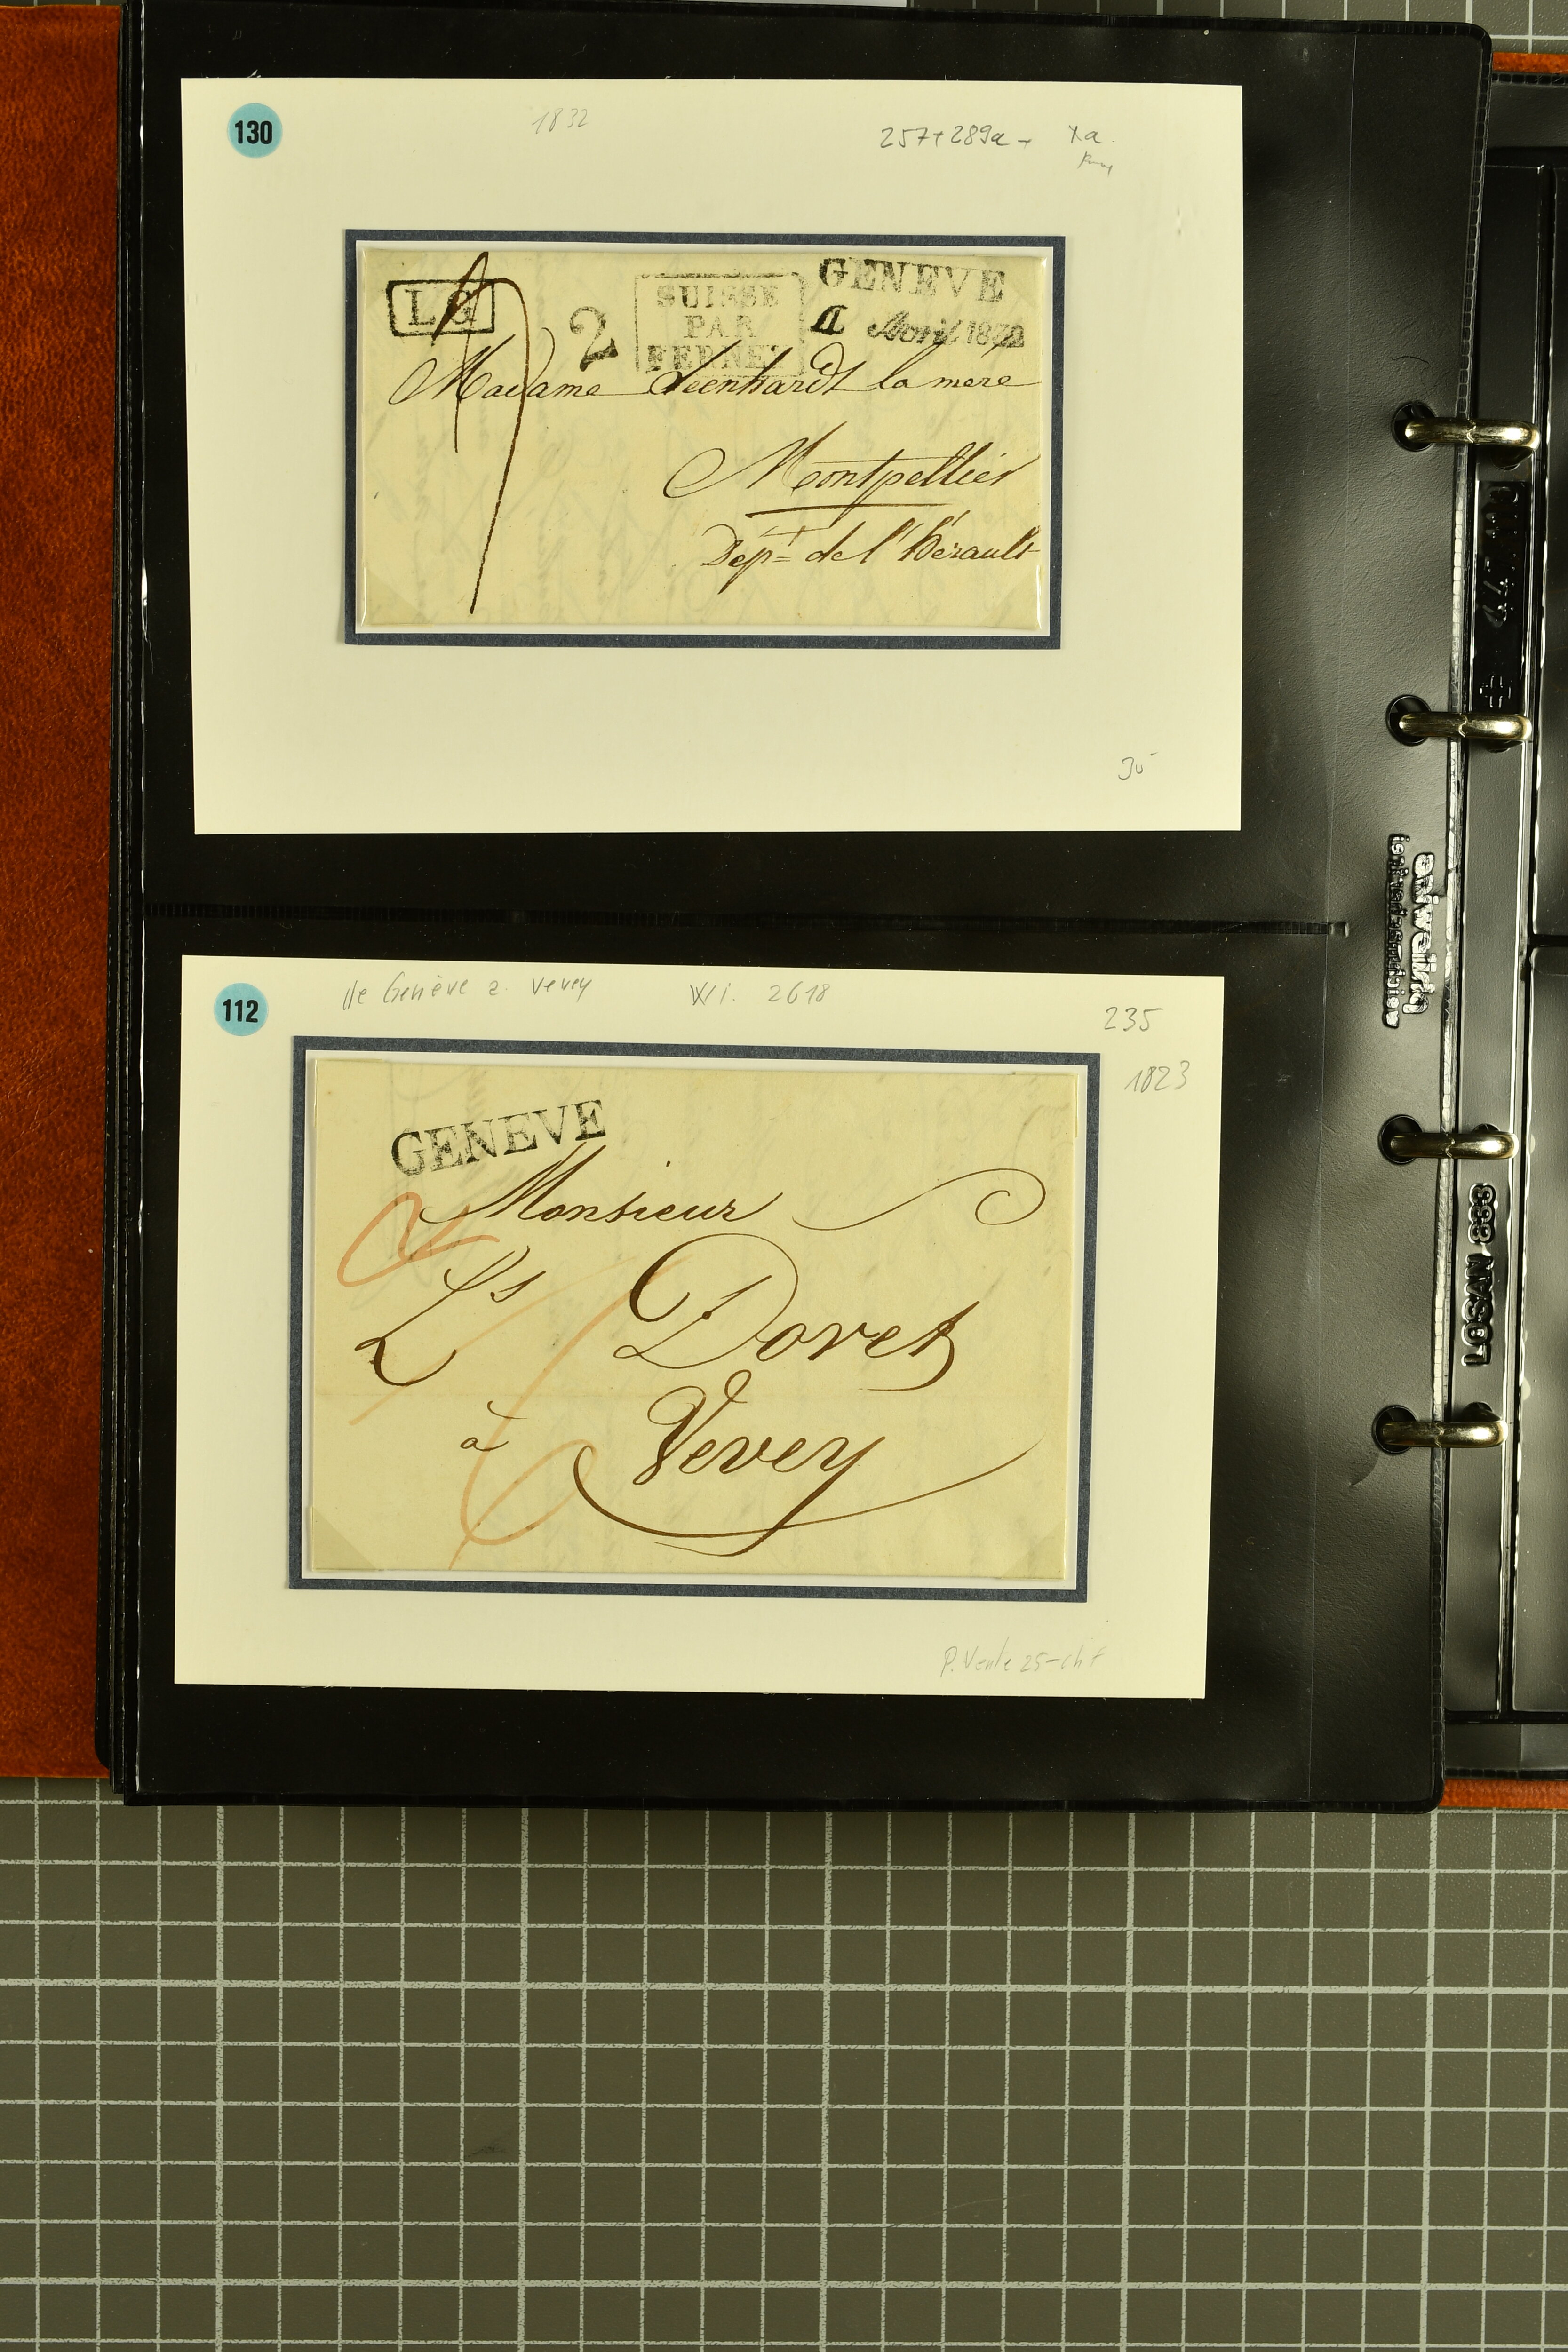 130
1832
257+289a -
Xa.
LG
2
SUISSE
PAR
FERNEY
GENEVE
Avril 1832
Madame Leenhardt la mere
Montpellier
Dept de l'hérault
30-
112
de Genève a. Vevey
Wi. 2618
235
1823
GENEVE
Monsieur
Ls Doret
à Vevey
P. Vente 25-chf
LOSAN 883